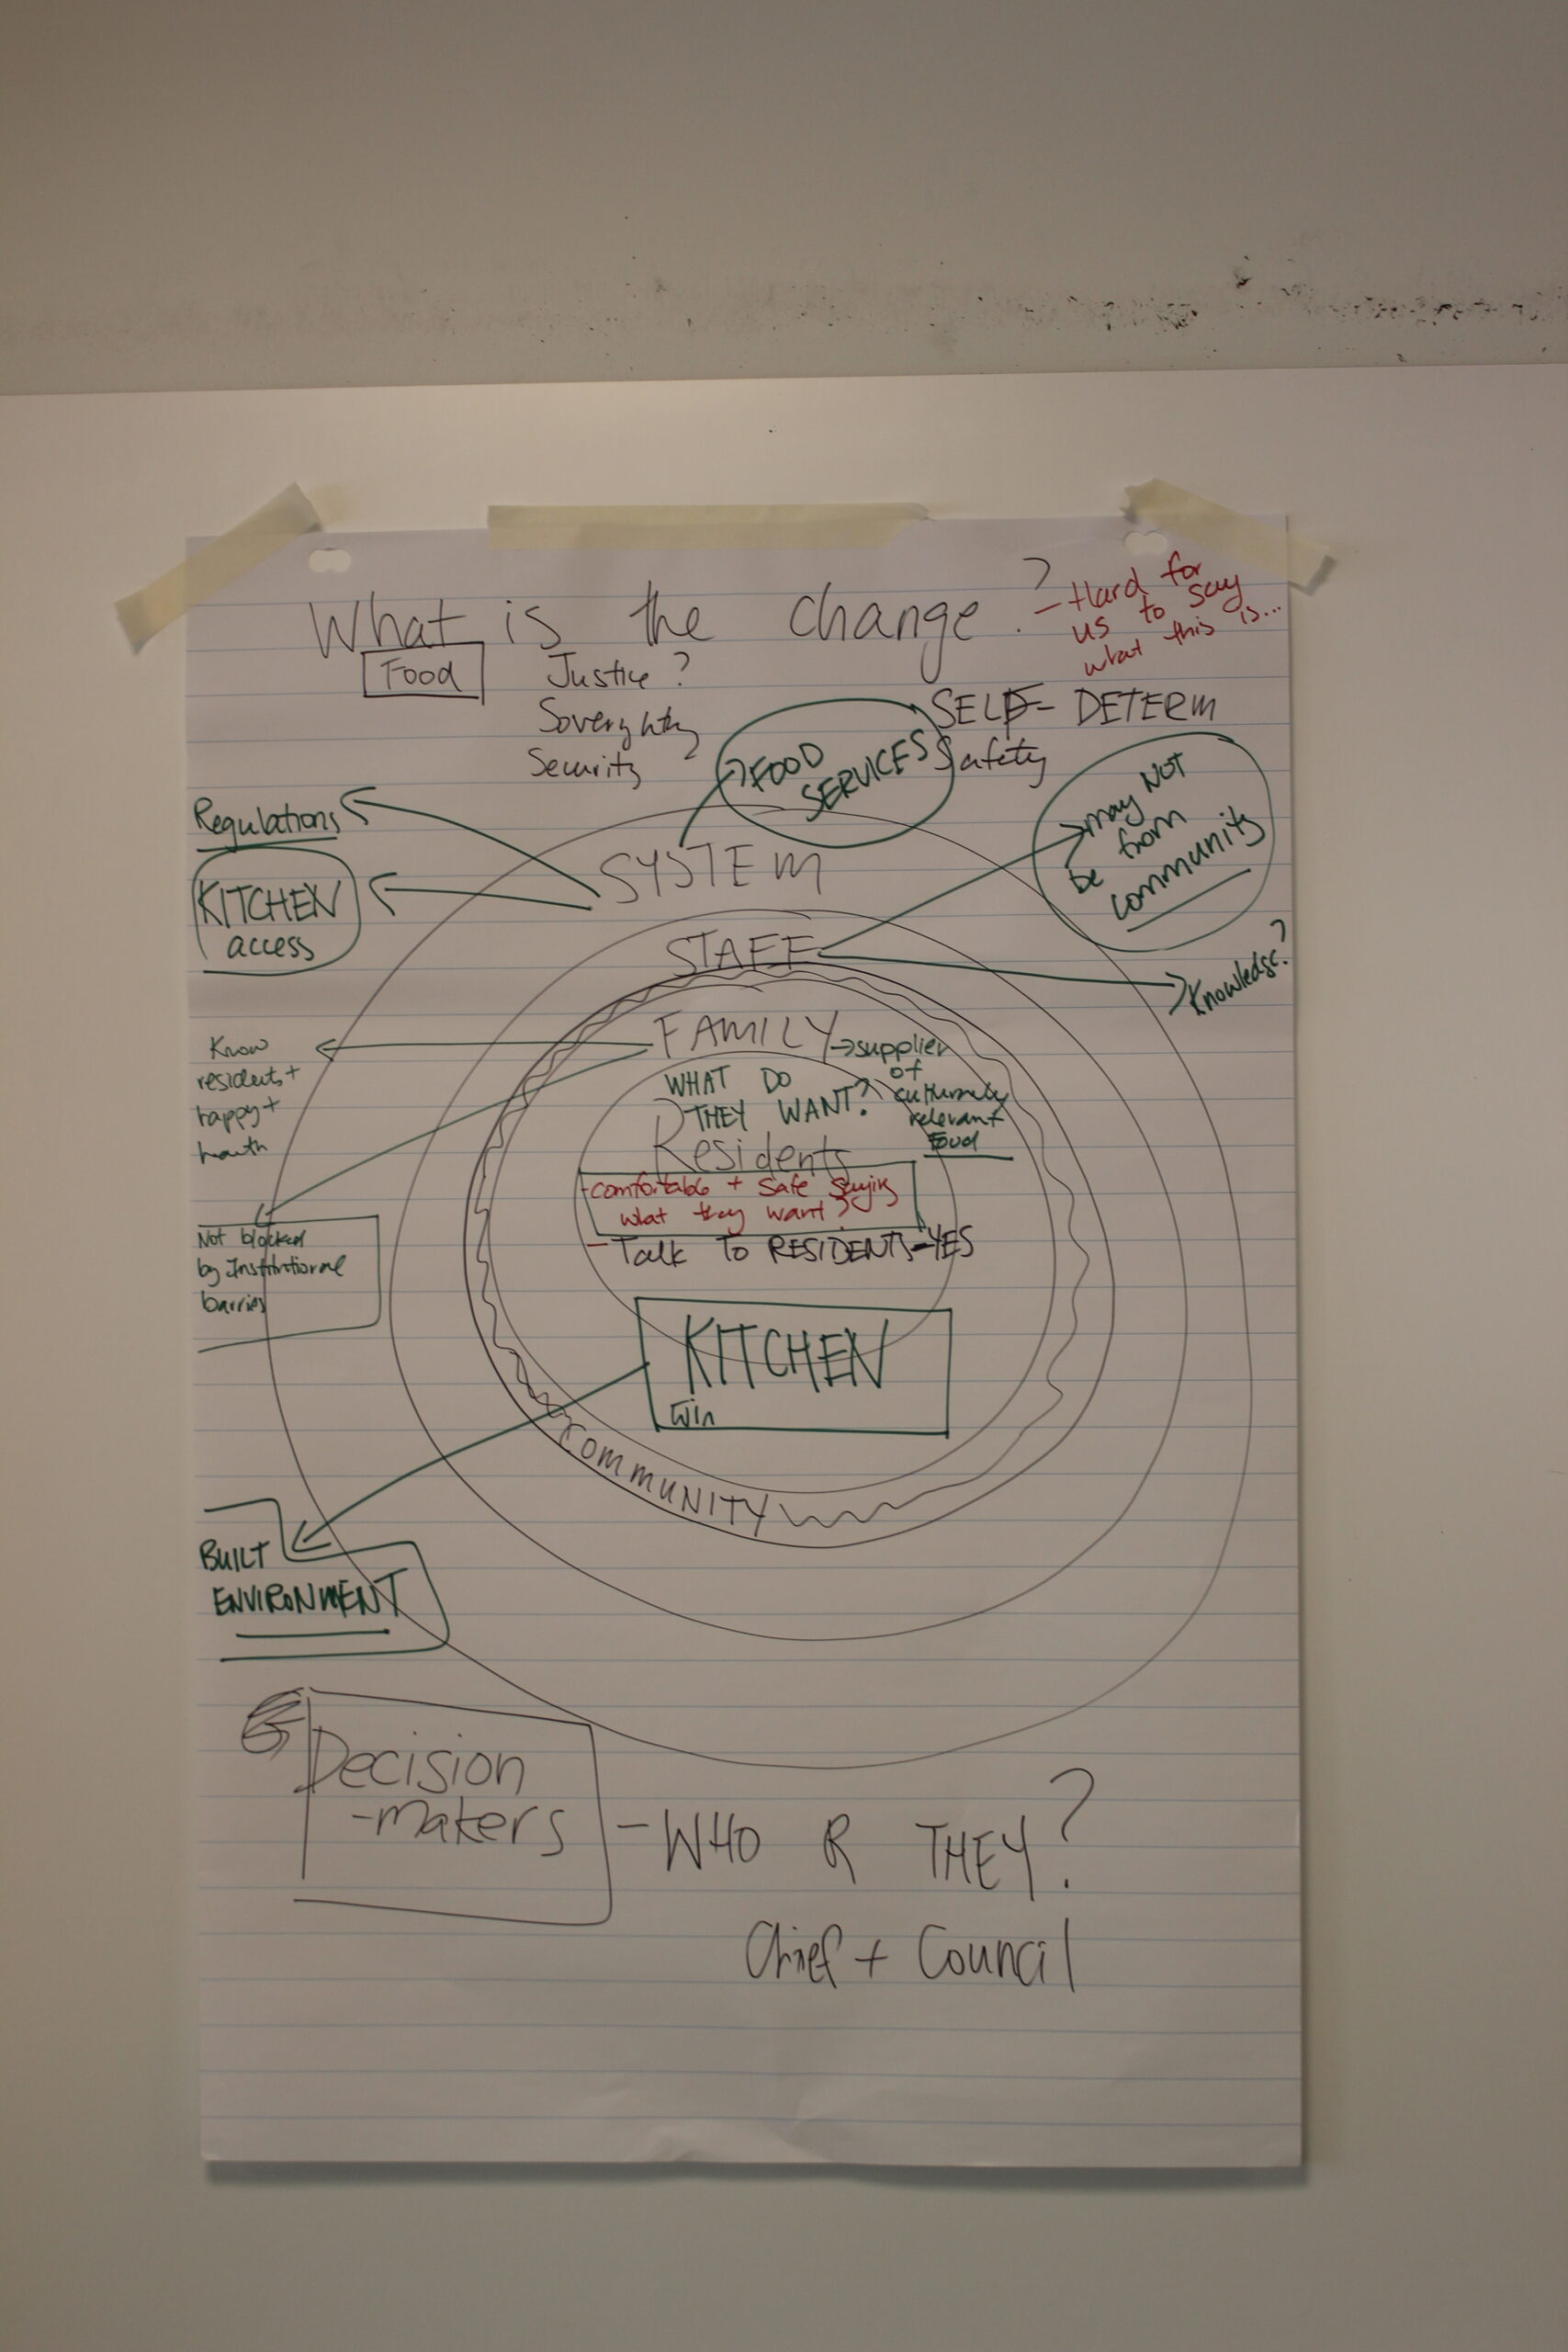 What is the change?
- Hard for
us to say
what this is...
Food
Justice?
Soverghty
Security
SELF- DETERM
Safety
FOOD
SERVICES
may NOT
be from
community
Regulations
KITCHEN
access
SYSTEM
STAFF
Knowledge?
FAMILY
supplier
of
culturally
relevant
Food
Know
residents +
happy +
health
WHAT DO
THEY WANT?
Residents
- comfortable + safe saying
what they want?
- Talk to RESIDENTS - YES
Not blocked
by Institutional
barries
KITCHEN
Win
COMMUNITY
BUILT
ENVIRONMENT
Decision
-makers
- WHO R THEY?
Chief + Council